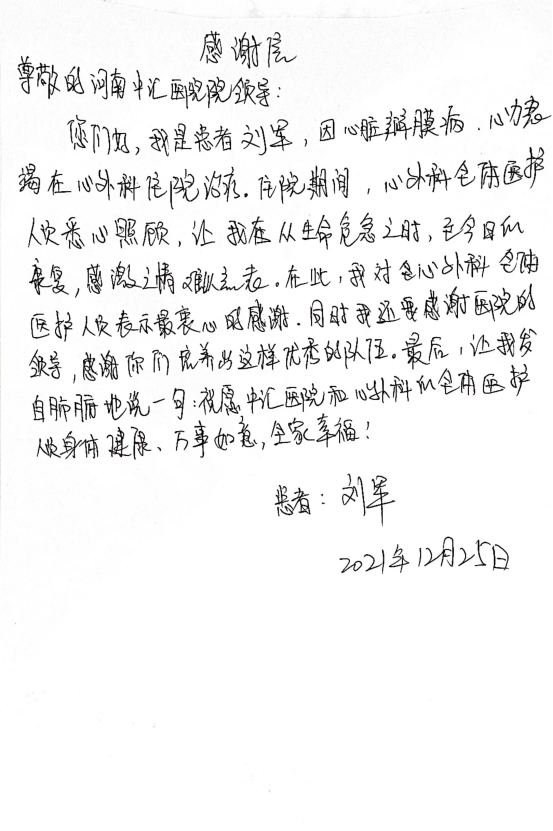 感谢信
尊敬的河南中汇医院院领导：
您们好，我是患者刘军，因心脏瓣膜病．心功衰
竭在心外科住院治疗。住院期间，心外科全体医护
人员悉心照顾，让我在从生命危急之时，至今日的
康复，感激之情难以言表。在此，我对全心外科全体
医护人员表示最衷心的感谢．同时我还要感谢医院的
领导，感谢你们培养出这样优秀的队伍。最后，让我发
自肺腑地说一句：祝愿中汇医院和心外科的全体医护
人员身体健康、万事如意，全家幸福！
患者：刘军
2021年12月25日